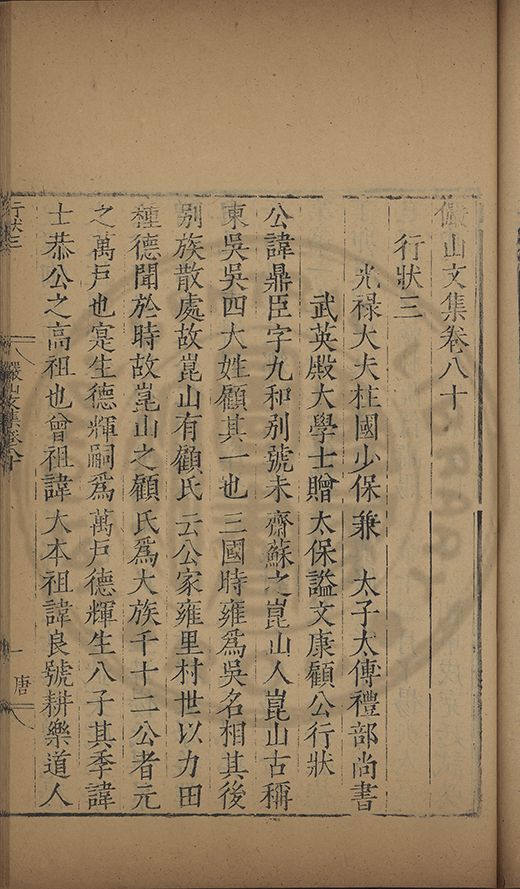 儼山文集卷八十
行狀三
光祿大夫柱國少保兼　太子太傅禮部尚書
武英殿大學士贈　太保謚文康顧公行狀
公諱鼎臣字九和别號未齋蘇之崑山人崑山古稱
東吳吳四大姓顧其一也三國時雍爲吳名相其後
别族散處故崑山有顧氏云公家雍里村世以力田
種德聞於時故崑山之顧氏爲大族千十二公者元
之萬戶也寔生德輝嗣爲萬戶德輝生八子其季諱
士恭公之高祖也曾祖諱大本祖諱良號耕樂道人
行狀三
儼山文集卷八十
一
唐